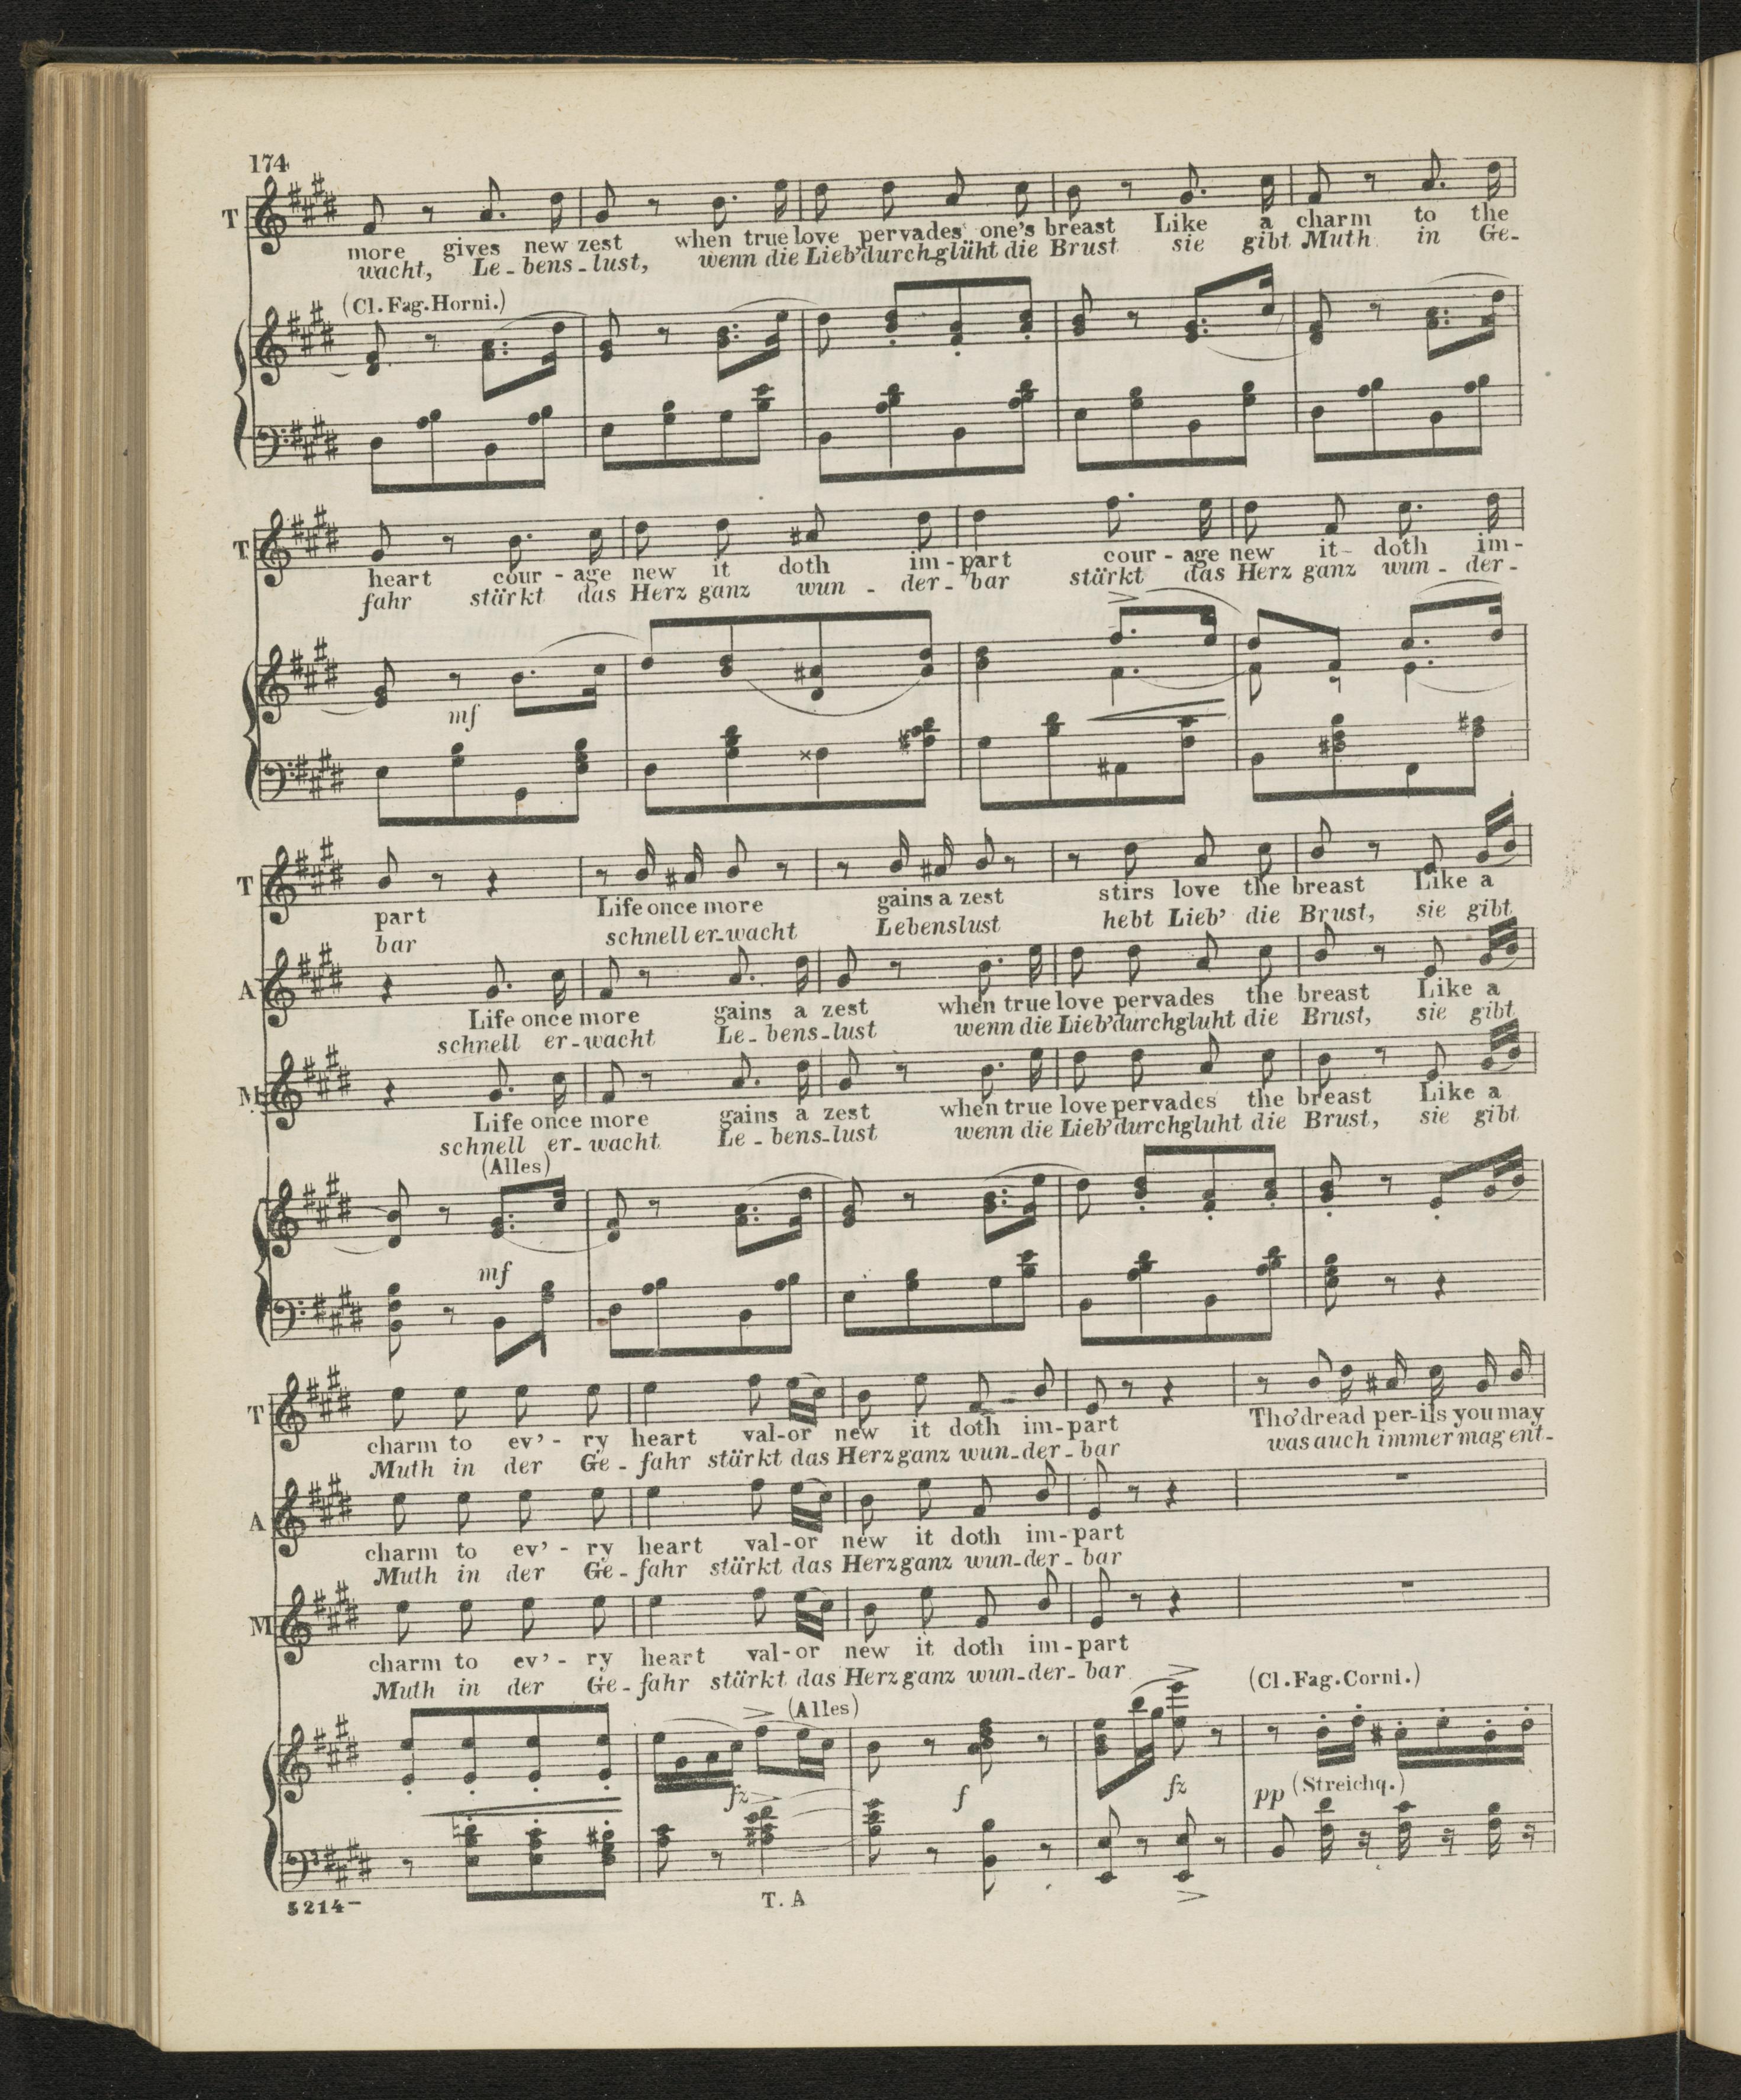 174
T
more gives new zest when true love pervades one's breast Like a charm to the
wacht, Le - bens - lust, wenn die Lieb' durchglüht die Brust sie gibt Muth in Ge-
(Cl. Fag. Horni.)
T
heart cour - age new it doth im - part cour - age new it doth im-
fahr stärkt das Herz ganz wun - der - bar stärkt das Herz ganz wun - der-
mf
T
part Life once more gains a zest stirs love the breast Like a
bar schnell er-wacht Lebenslust hebt Lieb' die Brust, sie gibt
A
Life once more gains a zest when true love pervades the breast Like a
schnell er-wacht Le - bens - lust wenn die Lieb' durchgluht die Brust, sie gibt
M
Life once more gains a zest when true love pervades the breast Like a
schnell er-wacht Le - bens - lust wenn die Lieb' durchgluht die Brust, sie gibt
(Alles)
mf
T
charm to ev' - ry heart val-or new it doth im-part Tho' dread per-ils you may
Muth in der Ge - fahr stärkt das Herz ganz wun-der-bar was auch immer mag ent-
A
charm to ev' - ry heart val-or new it doth im-part
Muth in der Ge - fahr stärkt das Herz ganz wun-der-bar
M
charm to ev' - ry heart val-or new it doth im-part
Muth in der Ge - fahr stärkt das Herz ganz wun-der-bar
(Alles) (Cl. Fag. Corni.)
fz f fz pp (Streichq.)
5214- T. A